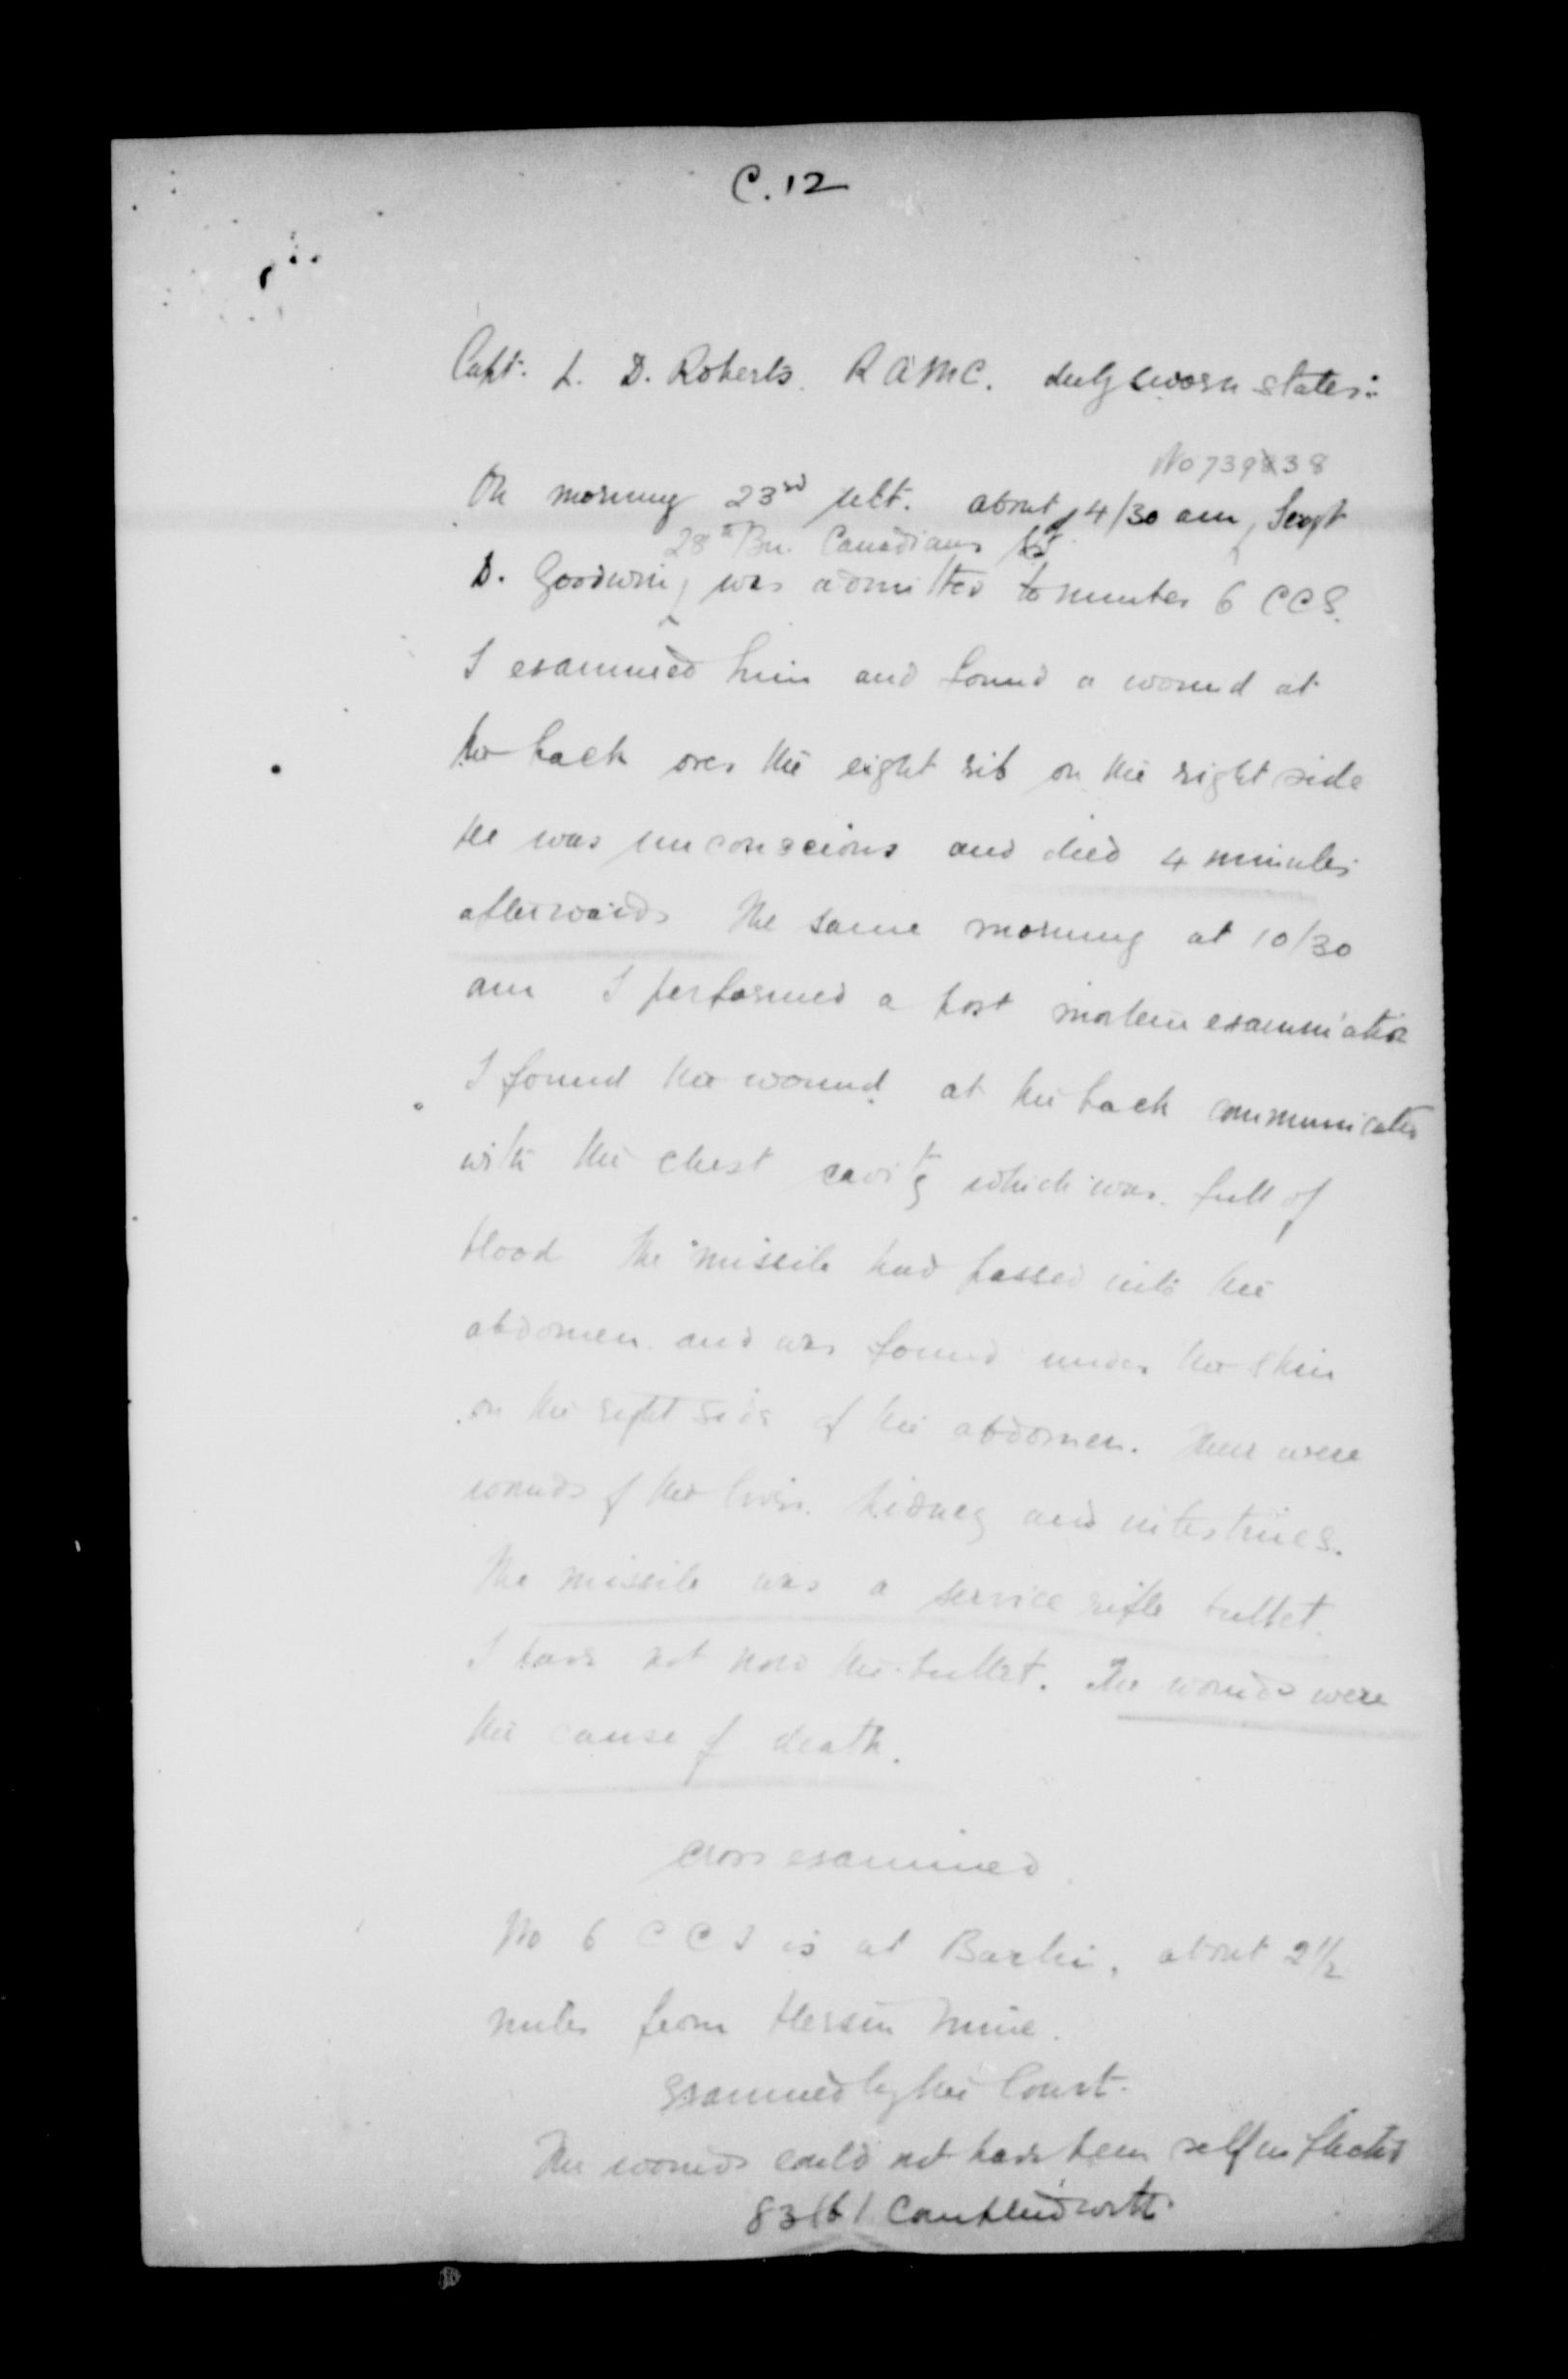 C. 12
Capt. L. D. Roberts. R A M C. duly sworn states:
No 73938
On morning 23rd ult. about 4/30 am, Sergt
28th Bn. Canadians
D. Goodwin, was admitted to number 6 CCS.
I examined him and found a wound at
the back over the eight rib on the right side
He was unconscious and died 4 minutes
afterwards The same morning at 10/30
am I performed a post mortem examination
I found the wound at the back communicated
with the chest cavity which was full of
blood The missile had passed into the
abdomen and was found under the skin
on the right side of the abdomen. There were
wounds of the liver, kidney and intestines.
The missile was a service rifle bullet.
I have not now the bullet. The wounds were
the cause of death.
cross examined
No 6 CCS is at Barlin, about 2 1/2
miles from Hersin Mine.
Examined by the Court.
The wounds could not have been self inflicted
83(b) Complied with.